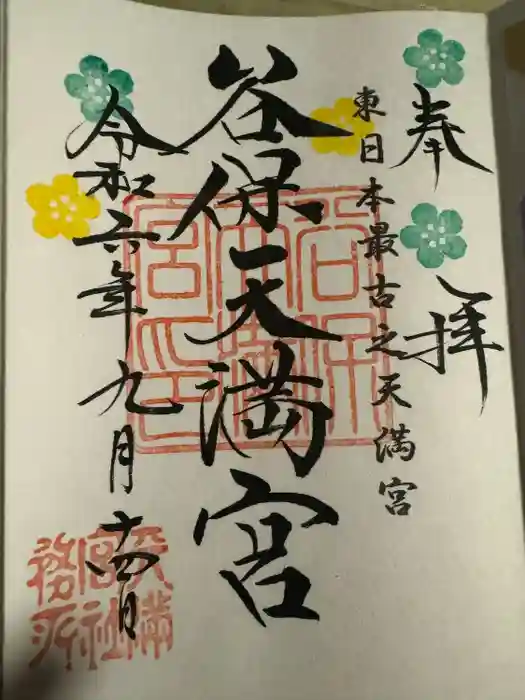 奉拝
東日本最古之天満宮
谷保天満宮
谷保
天満
宮印
令和六年九月十四日
天満
宮社
務所